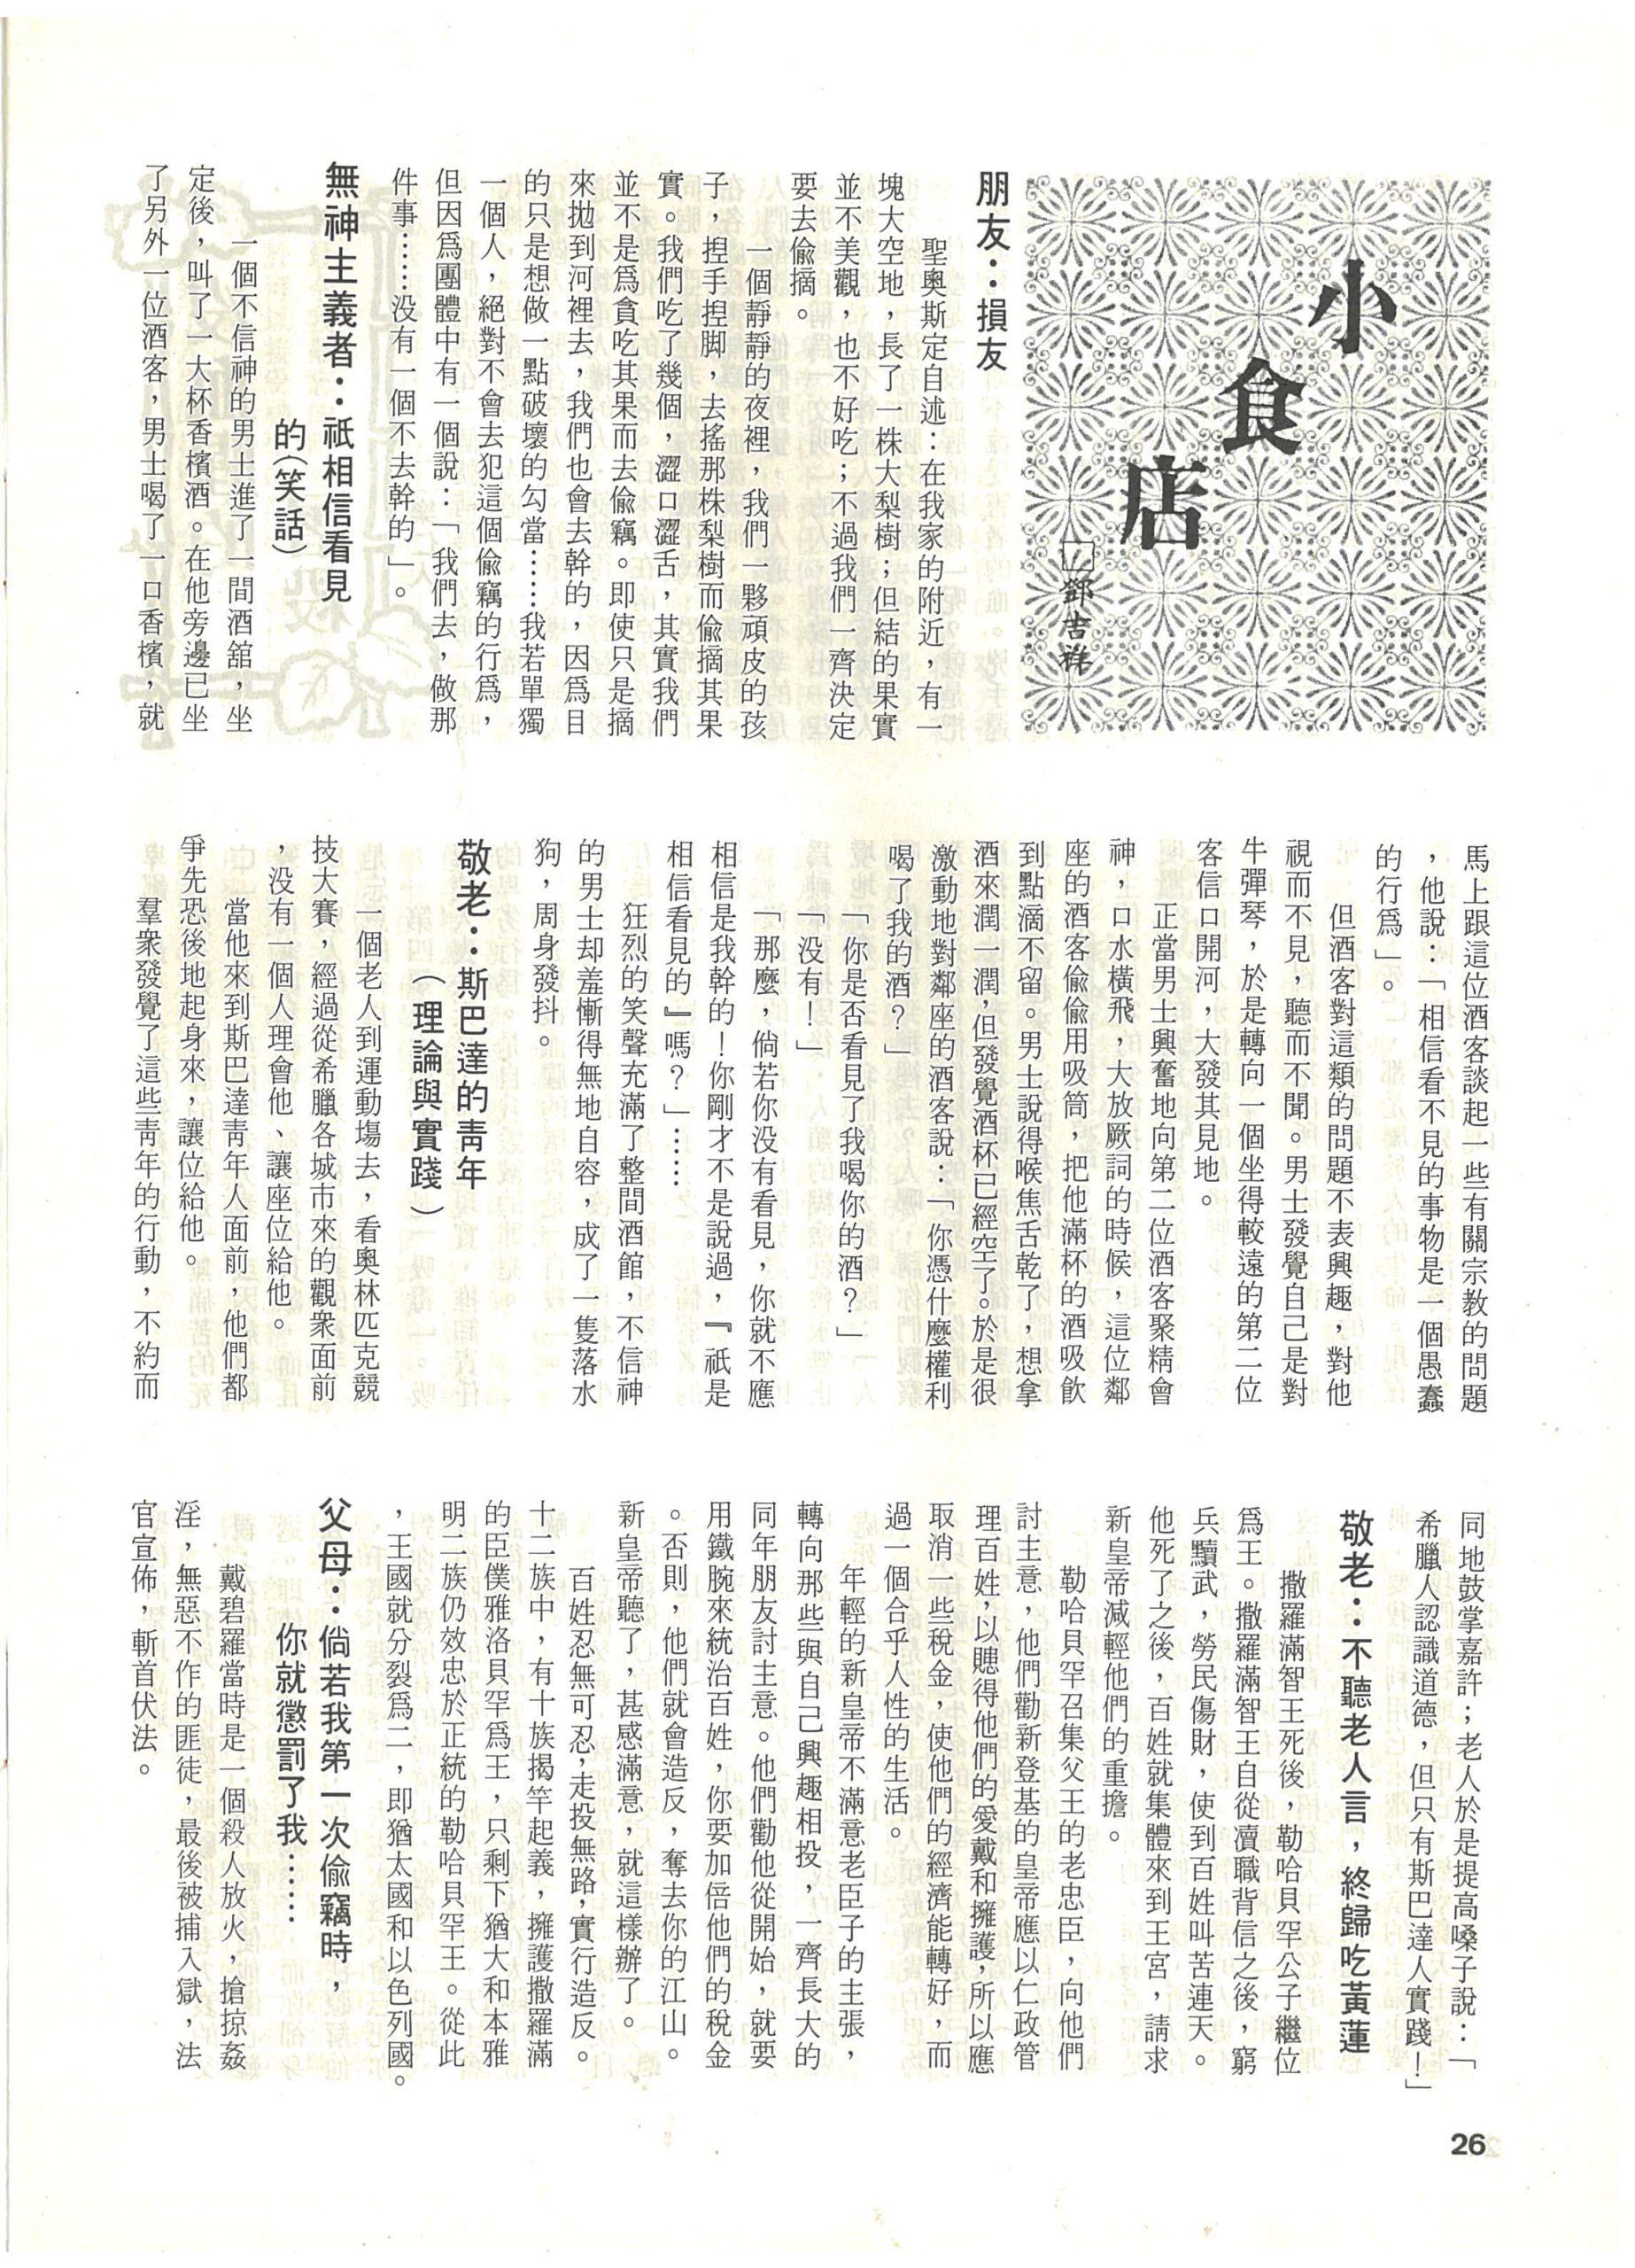 小食店
鄧吉祥
朋友：損友
聖奧斯定自述：在我家的附近，有一
塊大空地，長了一株大梨樹；但結的果實
並不美觀，也不好吃；不過我們一齊決定
要去偷摘。
一個靜靜的夜裡，我們一夥頑皮的孩
子，揑手揑脚，去搖那株梨樹而偷摘其果
實。我們吃了幾個，澀口澀舌，其實我們
並不是爲貪吃其果而去偷竊。即使只是摘
來拋到河裡去，我們也會去幹的，因爲目
的只是想做一點破壞的勾當……我若單獨
一個人，絕對不會去犯這個偷竊的行爲，
但因爲團體中有一個說：「我們去，做那
件事……没有一個不去幹的」。
無神主義者：祇相信看見
的（笑話）
一個不信神的男士進了一間酒舘，坐
定後，叫了一大杯香檳酒。在他旁邊已坐
了另外一位酒客，男士喝了一口香檳，就
馬上跟這位酒客談起一些有關宗教的問題
，他說：「相信看不見的事物是一個愚蠢
的行爲」。
但酒客對這類的問題不表興趣，對他
視而不見，聽而不聞。男士發覺自己是對
牛彈琴，於是轉向一個坐得較遠的第二位
客信口開河，大發其見地。
正當男士興奮地向第二位酒客聚精會
神，口水橫飛，大放厥詞的時候，這位鄰
座的酒客偷偷用吸筒，把他滿杯的酒吸飲
到點滴不留。男士說得喉焦舌乾了，想拿
酒來潤一潤，但發覺酒杯已經空了。於是很
激動地對鄰座的酒客說：「你憑什麼權利
喝了我的酒？」
「你是否看見了我喝你的酒？」
「没有！」
「那麼，倘若你没有看見，你就不應
相信是我幹的！你剛才不是說過，『祇是
相信看見的』嗎？」……
狂烈的笑聲充滿了整間酒館，不信神
的男士却羞慚得無地自容，成了一隻落水
狗，周身發抖。
敬老：斯巴達的靑年
（理論與實踐）
一個老人到運動塲去，看奧林匹克競
技大賽，經過從希臘各城市來的觀衆面前
，没有一個人理會他、讓座位給他。
當他來到斯巴達靑年人面前，他們都
爭先恐後地起身來，讓位給他。
羣衆發覺了這些靑年的行動，不約而
同地鼓掌嘉許；老人於是提高嗓子說：「
希臘人認識道德，但只有斯巴達人實踐！」
敬老：不聽老人言，終歸吃黃蓮
撒羅滿智王死後，勒哈貝罕公子繼位
爲王。撒羅滿智王自從瀆職背信之後，窮
兵黷武，勞民傷財，使到百姓叫苦連天。
他死了之後，百姓就集體來到王宮，請求
新皇帝減輕他們的重擔。
勒哈貝罕召集父王的老忠臣，向他們
討主意，他們勸新登基的皇帝應以仁政管
理百姓，以贃得他們的愛戴和擁護，所以應
取消一些稅金，使他們的經濟能轉好，而
過一個合乎人性的生活。
年輕的新皇帝不滿意老臣子的主張，
轉向那些與自己興趣相投，一齊長大的
同年朋友討主意。他們勸他從開始，就要
用鐵腕來統治百姓，你要加倍他們的稅金
。否則，他們就會造反，奪去你的江山。
新皇帝聽了，甚感滿意，就這樣辦了。
百姓忍無可忍，走投無路，實行造反。
十二族中，有十族揭竿起義，擁護撒羅滿
的臣僕雅洛貝罕爲王，只剩下猶大和本雅
明二族仍效忠於正統的勒哈貝罕王。從此
，王國就分裂爲二，即猶太國和以色列國。
父母：倘若我第一次偷竊時，
你就懲罰了我……
戴碧羅當時是一個殺人放火，搶掠姦
淫，無惡不作的匪徒，最後被捕入獄，法
官宣佈，斬首伏法。
26